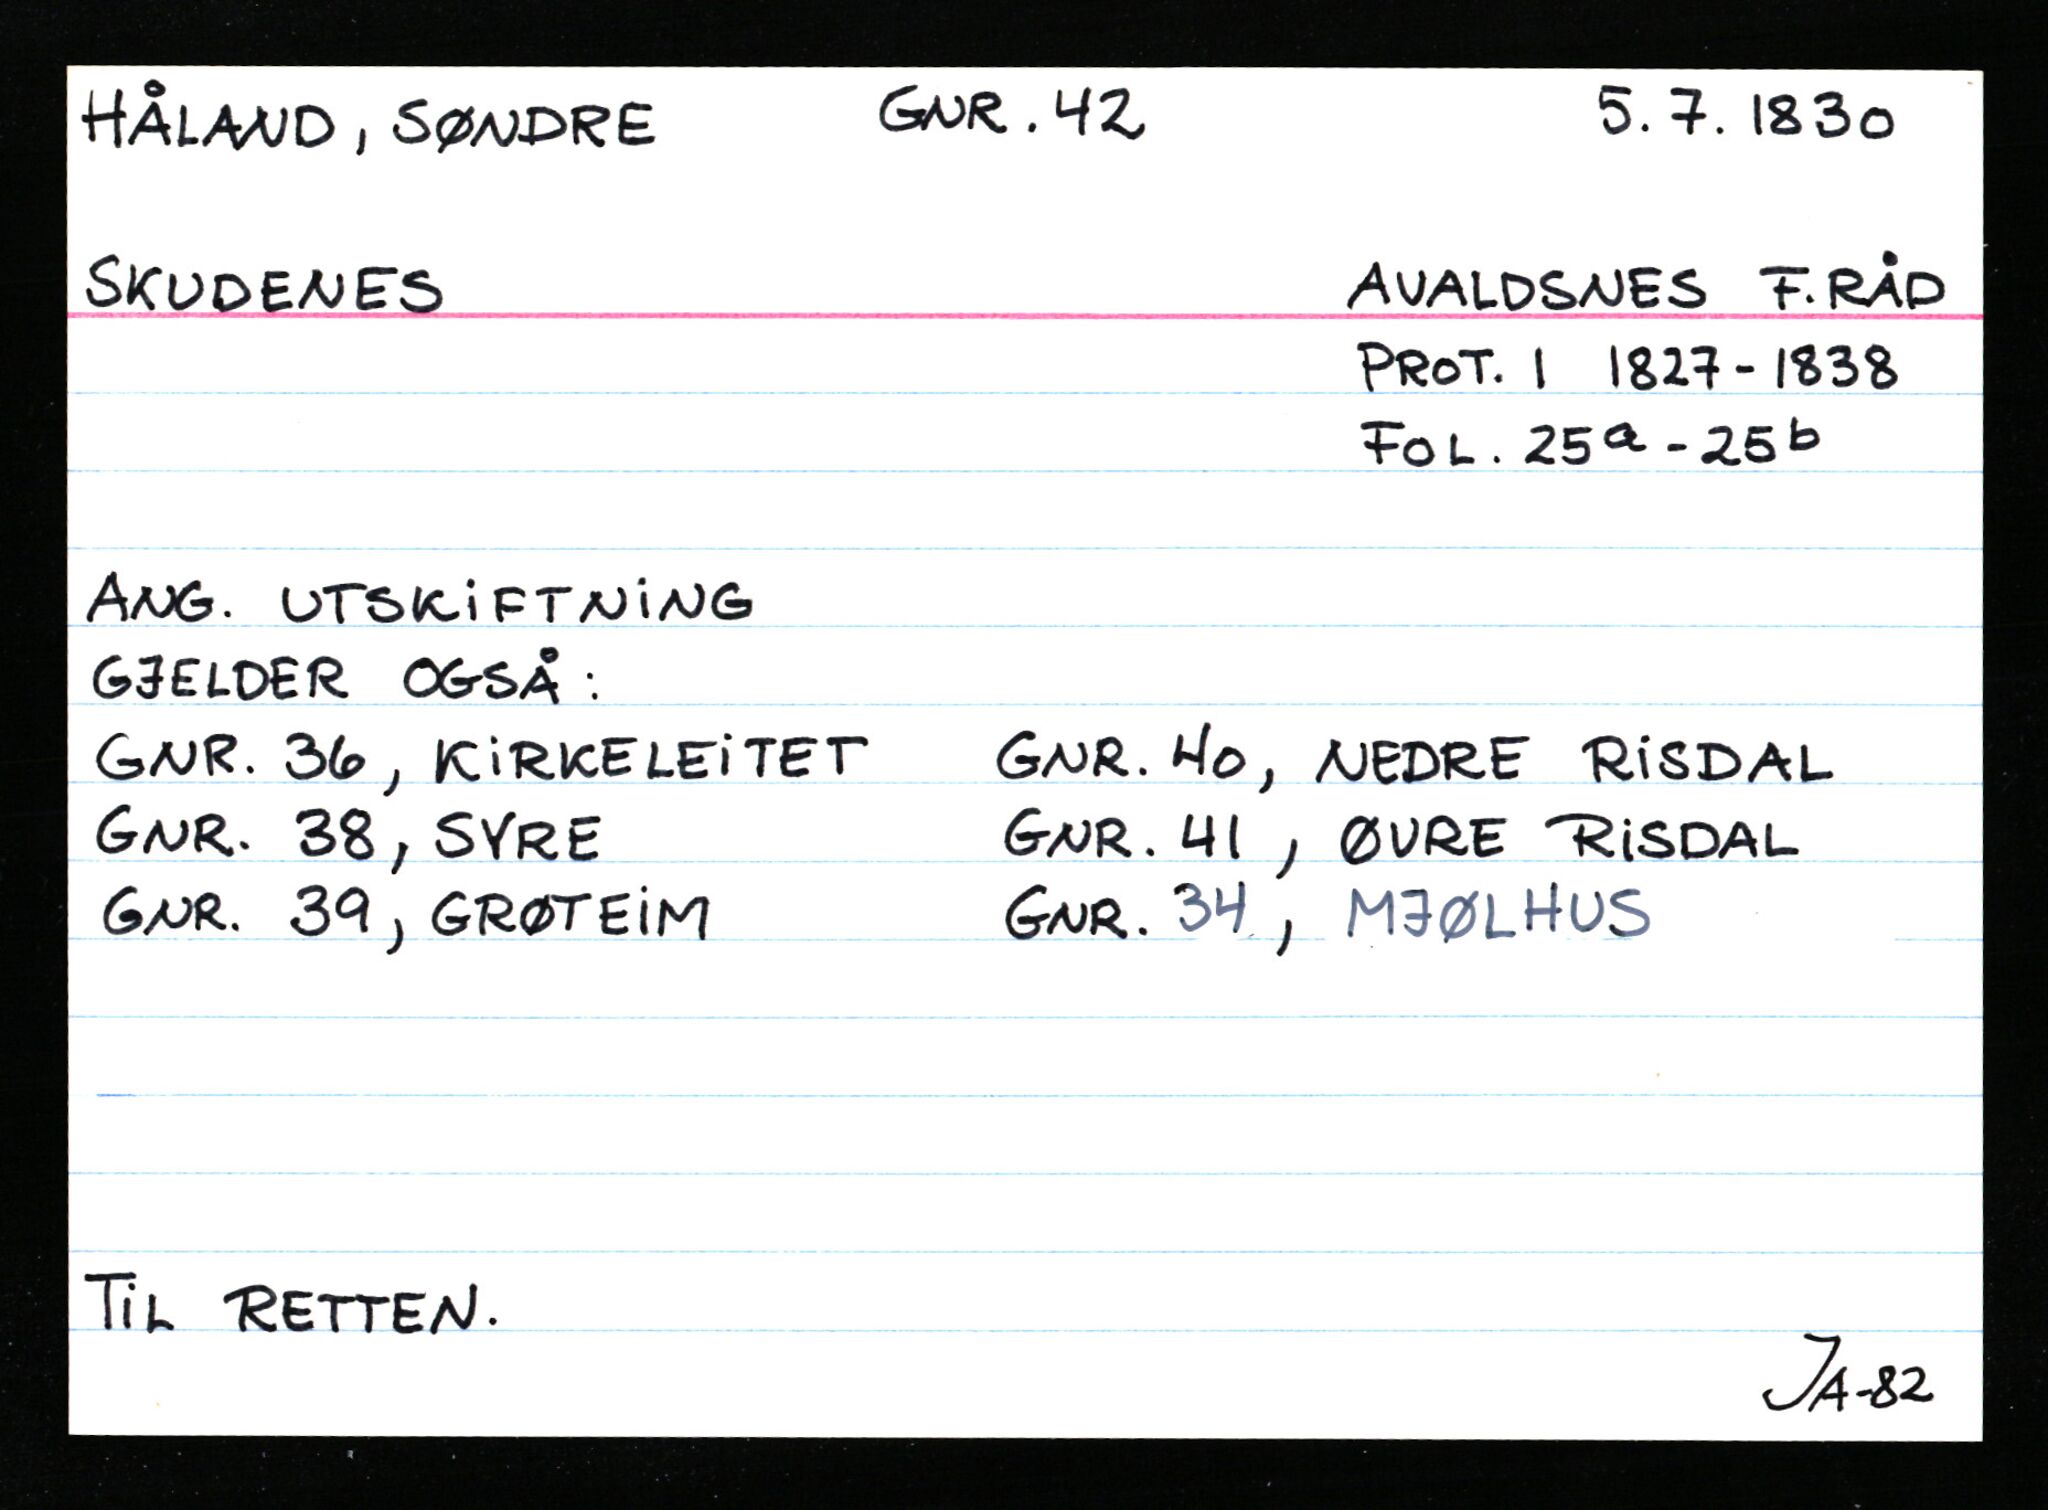 HÅLAND, SØNDRE GNR. 42 5.7.1830
SKUDENES AVALDSNES F.RÅD
PROT. 1 1827-1838
FOL. 25a-25b
ANG. UTSKIFTNING
GJELDER OGSÅ:
GNR. 36, KIRKELEITET GNR. 40, NEDRE RISDAL
GNR. 38, SYRE GNR. 41, ØVRE RISDAL
GNR. 39, GRØTEIM GNR. 34, MJØLHUS
TIL RETTEN.
JA-82